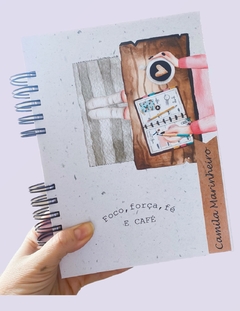 Foco, força, fé
E CAFÉ
Camila Marinheiro